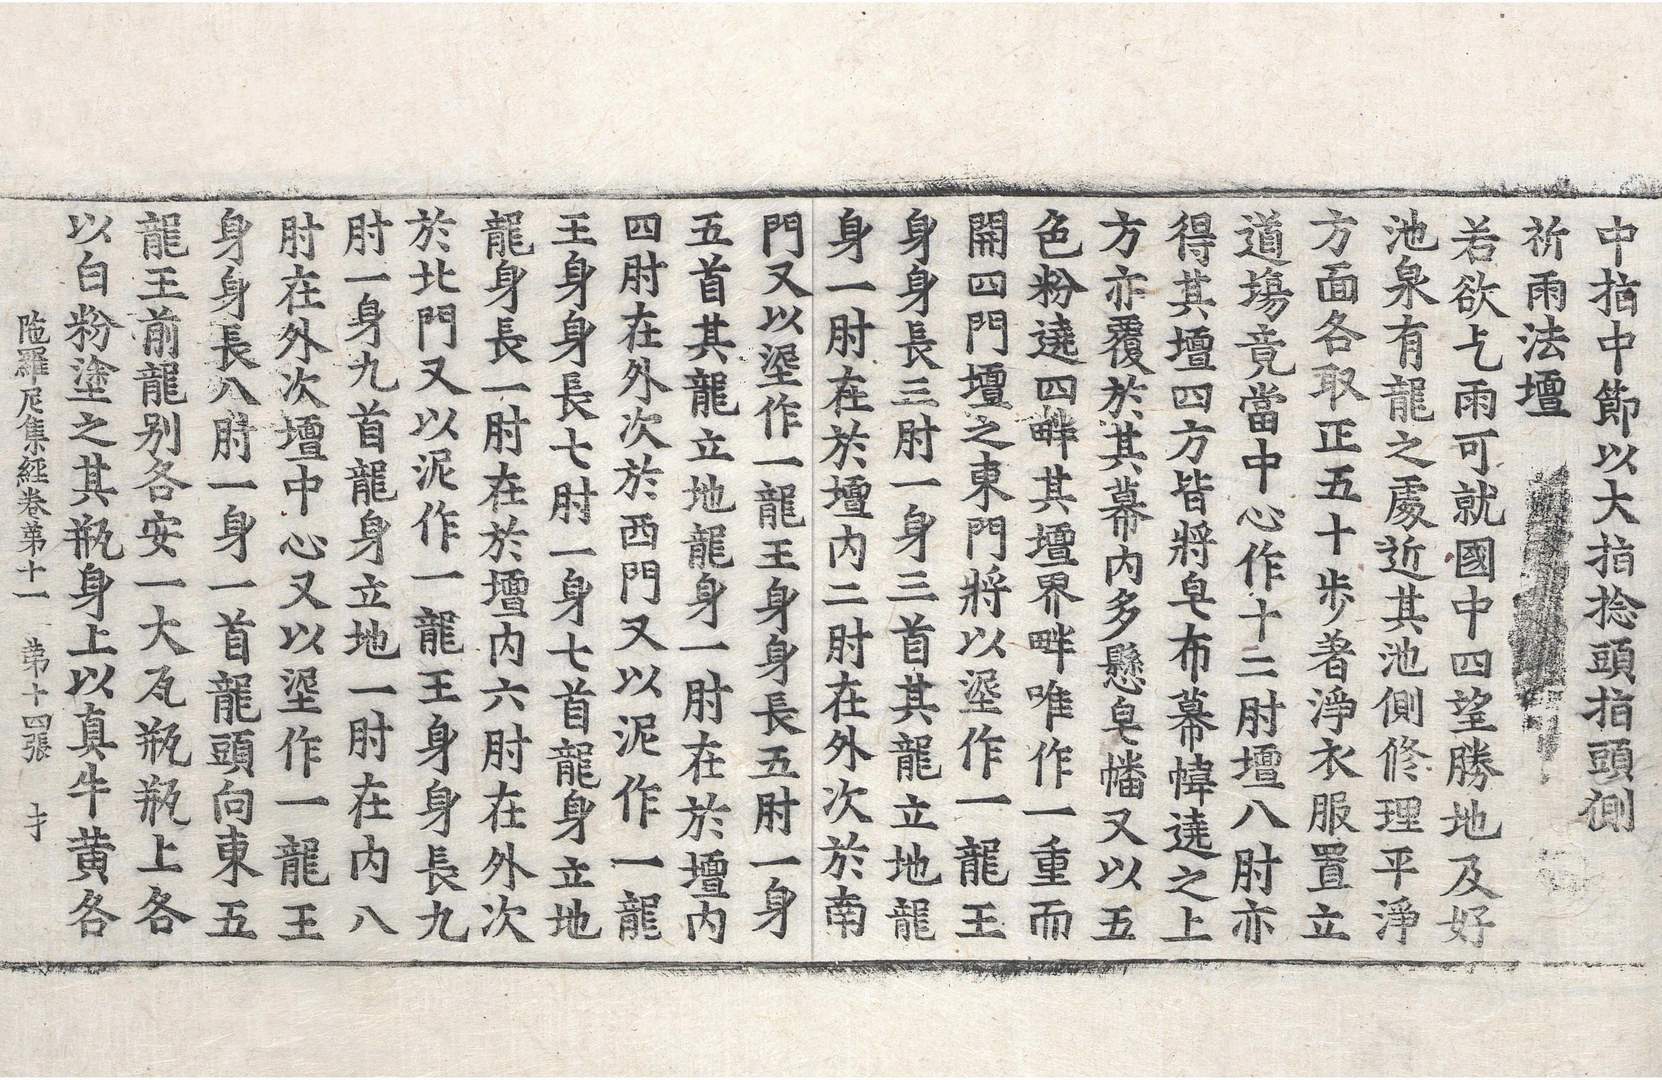 中指中節以大指捻頭指頭側
祈雨法壇
若欲乞雨可就國中四望勝地及好
池泉有龍之處近其池側修理平淨
方面各取正五十步著淨衣服置立
道場竟當中心作十二肘壇八肘亦
得其壇四方皆將皂布幕幃遶之上
方亦覆於其幕內多懸皂幡又以五
色粉遶四畔其壇界畔唯作一重而
開四門壇之東門將以埿作一龍王
身身長三肘一身三首其龍立地龍
身一肘在於壇內二肘在外次於南
門又以埿作一龍王身身長五肘一身
五首其龍立地龍身一肘在於壇內
四肘在外次於西門又以泥作一龍
王身身長七肘一身七首龍身立地
龍身長一肘在於壇內六肘在外次
於北門又以泥作一龍王身身長九
肘一身九首龍身立地一肘在內八
肘在外次壇中心又以埿作一龍王
身身長八肘一身一首龍頭向東五
龍王前龍別各安一大瓦瓶瓶上各
以白粉塗之其瓶身上以真牛黃各
陁羅尼集經卷第十一 第十四張 才